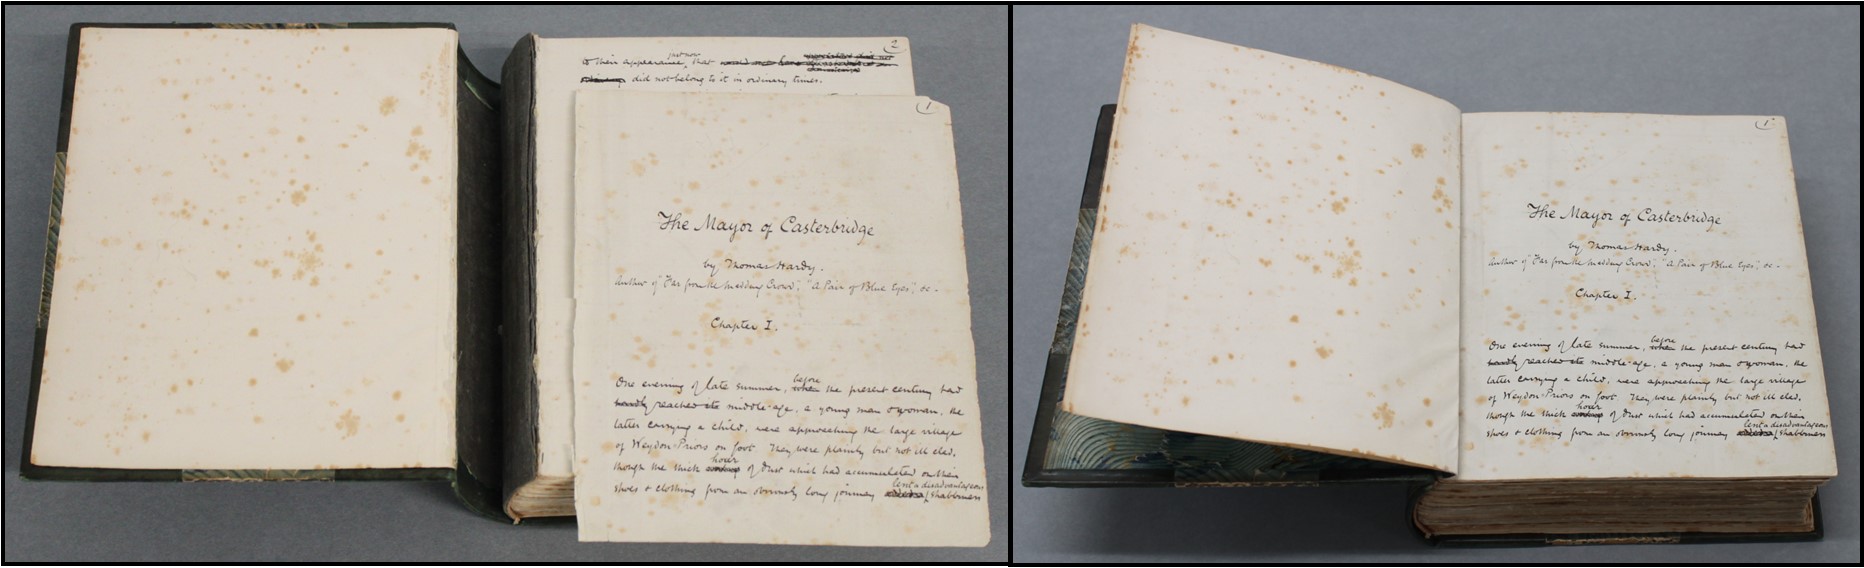 2
just now
to their appearance, that
did not belong to it in ordinary times.
1
The Mayor of Casterbridge
by Thomas Hardy.
Author of "Far from the Madding Crowd"; "A Pair of Blue Eyes", &c.
Chapter I.
before
One evening of late summer, when the present century had
hardly reached its middle-age, a young man & woman, the
latter carrying a child, were approaching the large village
of Weydon-Priors on foot. They were plainly but not ill clad,
hoar
though the thick of dust which had accumulated on their
lent a disadvantageous
shoes & clothing from an obviously long journey shabbiness
1
The Mayor of Casterbridge
by Thomas Hardy.
Author of "Far from the Madding Crowd"; "A Pair of Blue Eyes", &c.
Chapter I.
before
One evening of late summer, when the present century had
hardly reached its middle-age, a young man & woman, the
latter carrying a child, were approaching the large village
of Weydon-Priors on foot. They were plainly but not ill clad,
hoar
though the thick of dust which had accumulated on their
lent a disadvantageous
shoes & clothing from an obviously long journey shabbiness